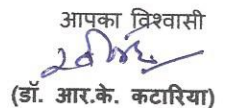 आपका विश्वासी
(डॉ. आर.के. कटारिया)